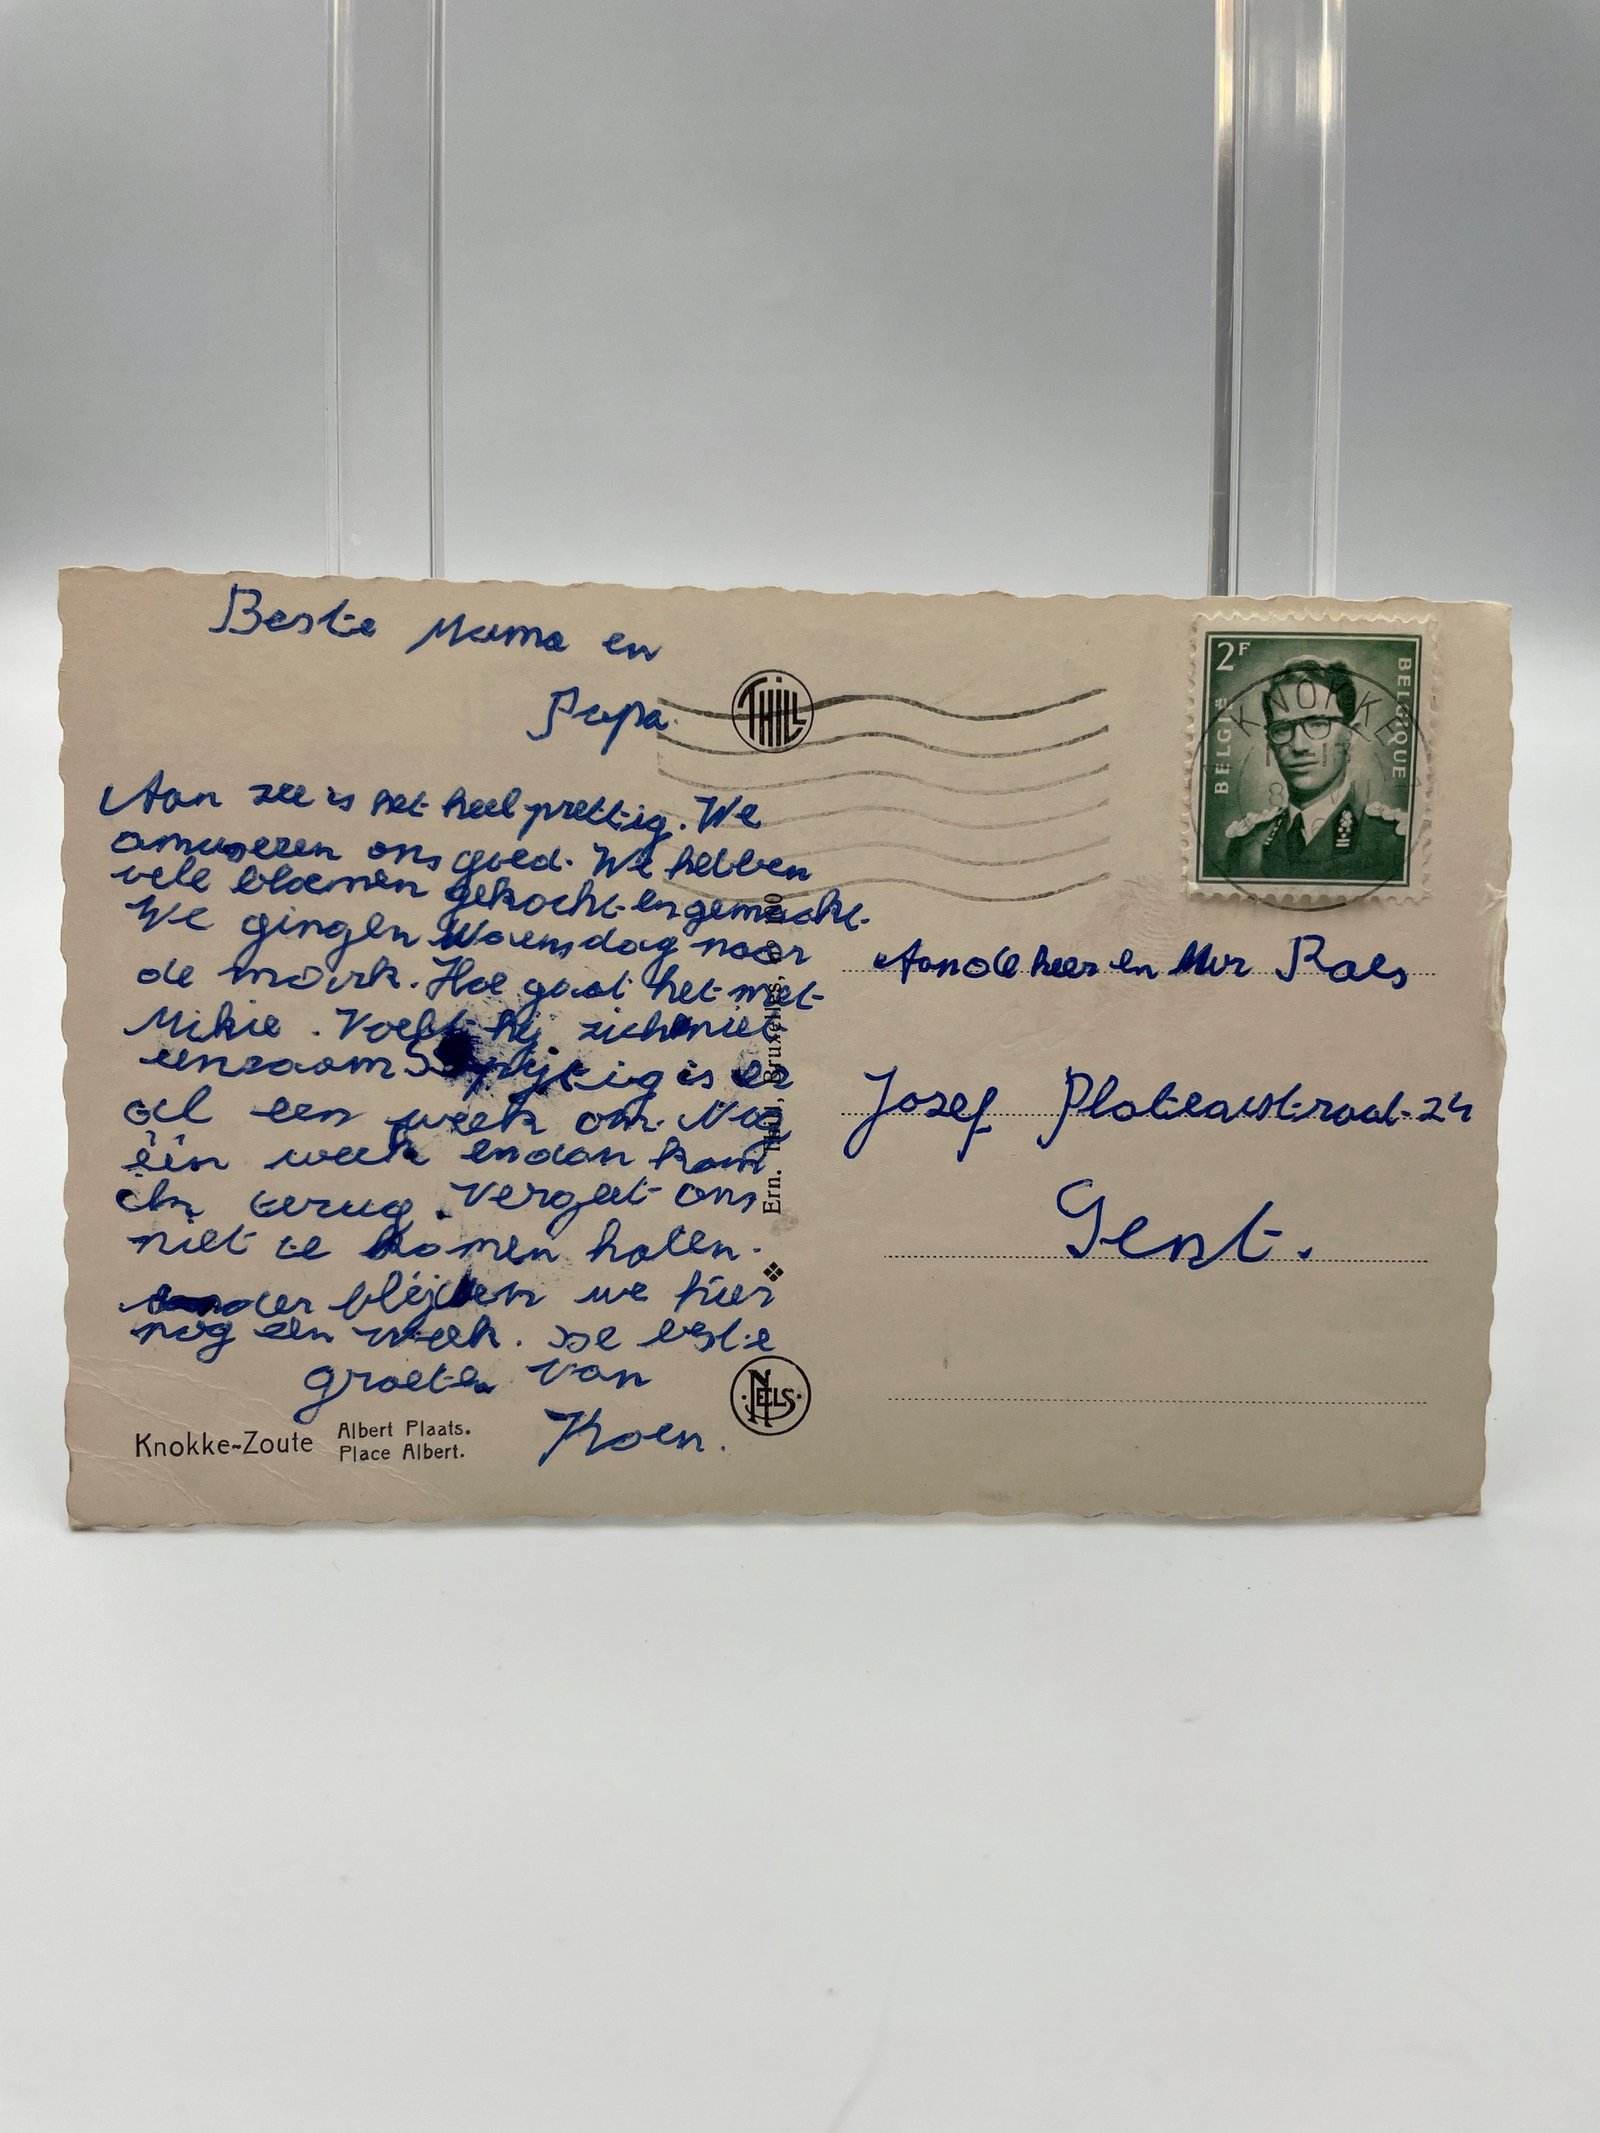 Beste Mama en
Papa.
Aan zee is het heel prettig. We
amuseren ons goed. We hebben
vele bloemen gekocht en gemaakt.
We gingen Woensdag naar
de markt. Hoe gaat het met
Mikie. Voelt hij zich niet
eenzaam is er
al een week om. Nog
één week en dan kom
ik terug. Vergeet ons
niet te komen halen.
ander blijven we hier
nog een week. De beste
groeten van
Koen.
Knokke-Zoute
Albert Plaats.
Place Albert.
THILL
Ern. Thill, Bruxelles,
NELS
2F
BELGIË
BELGIQUE
KNOKKE
Aan de heer en Mvr Raes
Jozef Plateaustraat 24
Gent.